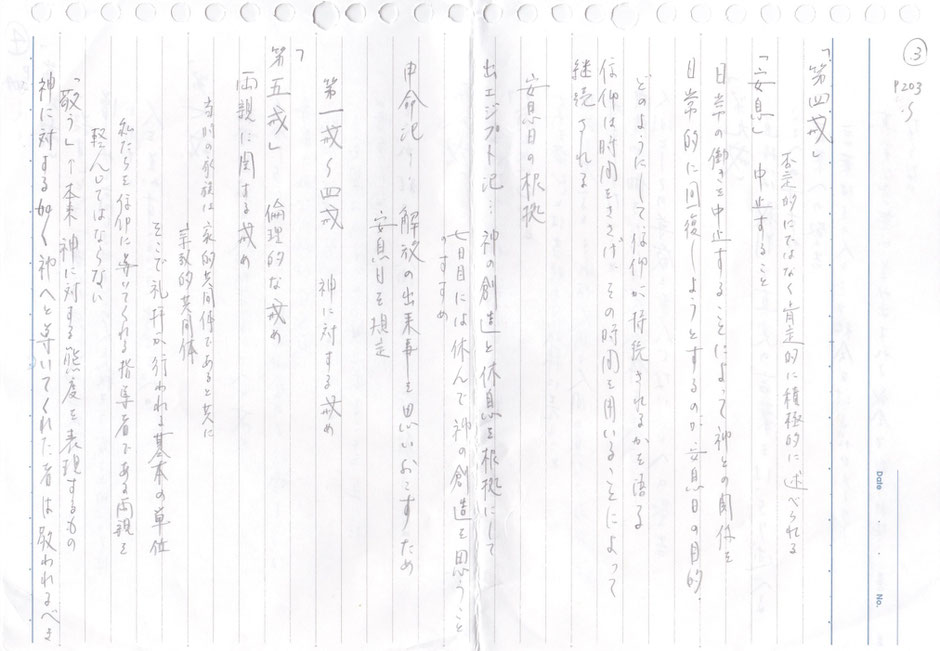 ③
P203〜
「第四戒」
否定的にではなく肯定的に積極的に述べられる
「安息」 中止すること
日常の働きを中止することによって神との関係を
日常的に回復しようとするのが安息日の目的
どのようにして信仰が持続されるかを語る
信仰は時間をささげ、その時間を用いることによって
継続される
安息日の根拠
出エジプト記… 神の創造と休息を根拠にして
七日目には休んで神の創造を思うこと
のすすめ
申命記… 解放の出来事を思いおこすため
安息日を規定
第一戒〜四戒 神に対する戒め
「第五戒」 倫理的な戒め
両親に関する戒め
当時の家族は家的共同体であると共に
宗教的共同体
そこで礼拝が行われる基本の単位
私たちを信仰に導いてくれる指導者である両親を
軽んじてはならない
「敬う」↑本来 神に対する態度を表現するもの
神に対する如く神へと導いてくれた者は敬われるべき
Date
No.